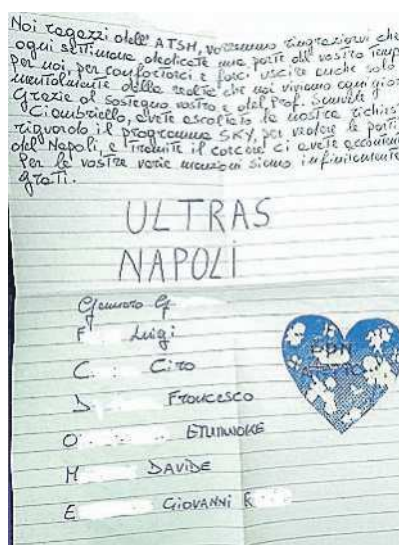 Noi ragazzi dell'ATSH, vorremmo ringraziarvi che
ogni settimana dedicate una parte del vostro temp
per noi, per confortarci e farci uscire anche solo
mentalmente dalla realtà che noi viviamo ogni gior
Grazie al sostegno vostro e del Prof. Samuele
Ciambriello, avete ascoltato la nostra richies
riguardo il programma SKY, per vedere le parti
del Napoli, e tramite il carcere ci avete acconten
Per le vostre varie mansioni siamo infinitamente
grati.
ULTRAS
NAPOLI
Gennaro G
F Luigi
C. Ciro
D Francesco
O EMANUELE
M DAVIDE
E GIOVANNI R
DON